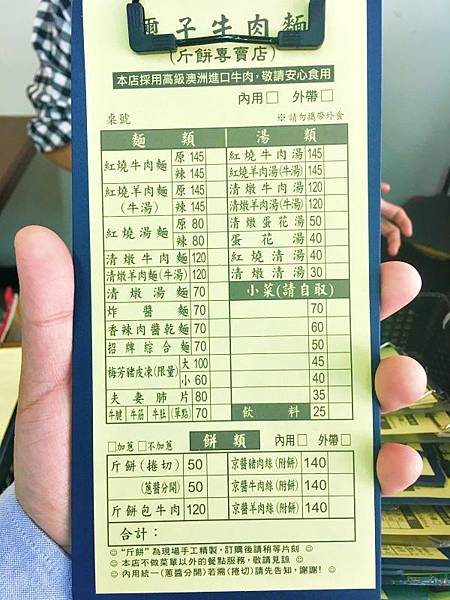 子牛肉麵
(斤餅專賣店)
本店採用高級澳洲進口牛肉,敬請安心食用
內用□ 外帶□
桌號 ※請勿攜帶外食
麵類
紅燒牛肉麵 原 145
辣 145
紅燒羊肉麵(牛湯) 原 145
辣 145
紅燒湯麵 原 80
辣 80
清燉牛肉麵 120
清燉羊肉麵(牛湯) 120
清燉湯麵 70
炸醬麵 70
香辣肉醬乾麵 70
招牌綜合麵 70
梅芳豬皮凍(限量) 大 100
小 60
夫妻肺片 80
牛腱 牛筋 牛肚(單點) 70
湯類
紅燒牛肉湯 145
紅燒羊肉湯(牛湯) 145
清燉牛肉湯 120
清燉羊肉湯(牛湯) 120
清燉蛋花湯 50
蛋花湯 40
紅燒清湯 40
清燉清湯 30
小菜(請自取)
70
60
50
45
40
35
飲料 25
□加蔥 □不加蔥 餅類 內用□ 外帶□
斤餅(捲切) 50
(蔥醬分開) 50
斤餅包牛肉 120
京醬豬肉絲(附餅) 140
京醬牛肉絲(附餅) 140
京醬羊肉絲(附餅) 140
合計:
☺“斤餅”為現場手工精製,訂購後請稍等片刻 ☺
☺本店不做菜單以外的餐點服務,敬請見諒 ☺
☺內用統一(蔥醬分開)若需(捲切)請先告知,謝謝! ☺